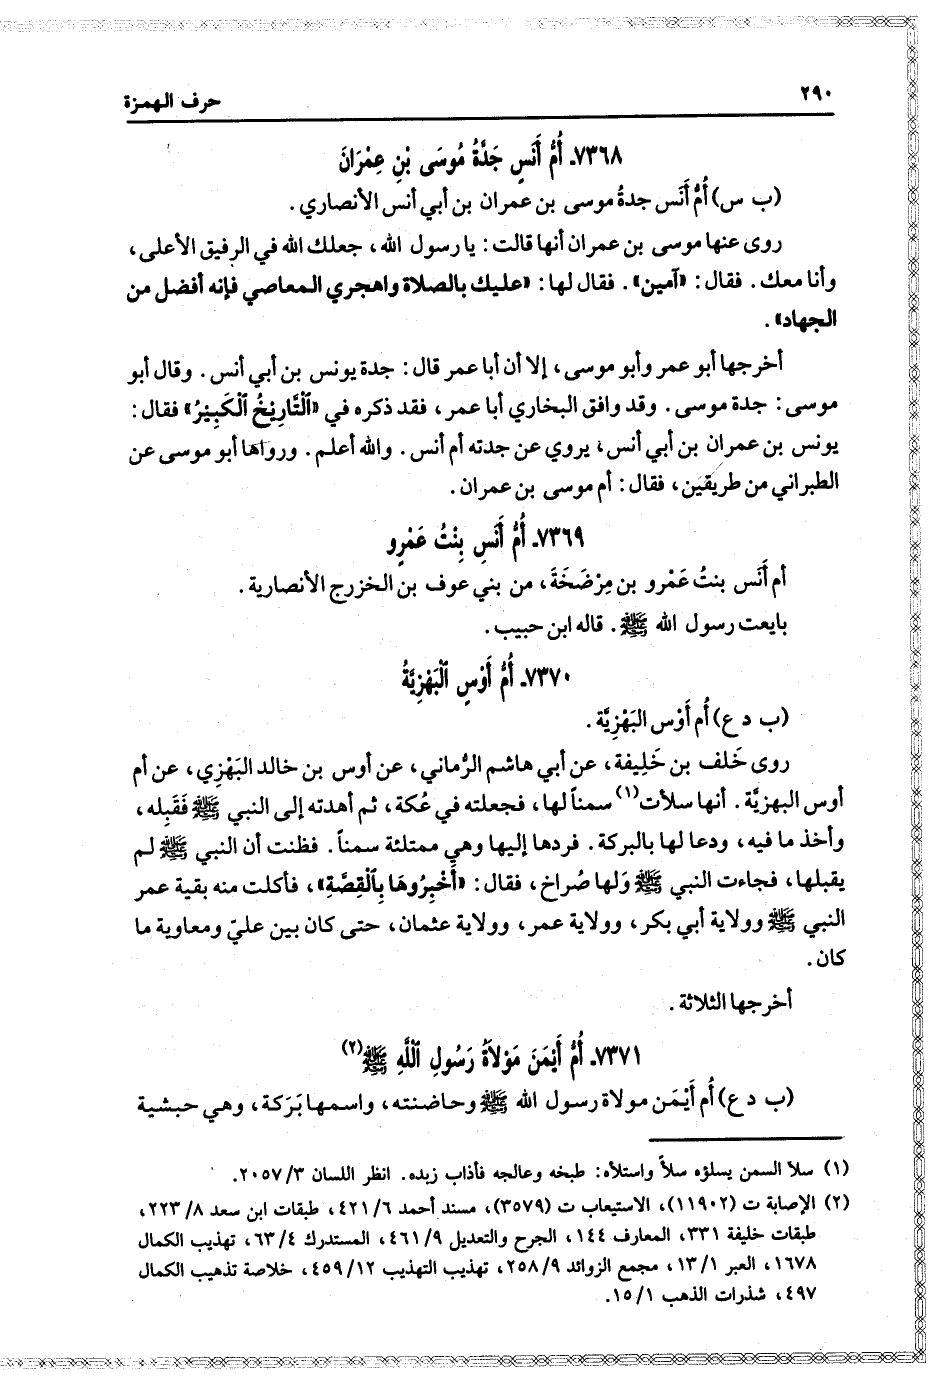 ٢٩٠
حرف الهمزة
٧٣٦٨ـ أُمُّ أَنَسٍ جَدَّةُ مُوسَى بْنِ عِمْرَانَ
(ب س) أُمُّ أَنَس جدةُ موسى بن عمران بن أبي أنس الأنصاري.
روى عنها موسى بن عمران أنها قالت: يا رسول الله، جعلك الله في الرفيق الأعلى،
وأنا معك. فقال: «آمين». فقال لها: «عليك بالصلاة واهجري المعاصي فإنه أفضل من
الجهاد».
أخرجها أبو عمر وأبو موسى، إلا أن أبا عمر قال: جدة يونس بن أبي أنس. وقال أبو
موسى: جدة موسى. وقد وافق البخاري أبا عمر، فقد ذكره في «ٱلتَّارِيْخُ ٱلْكَبِيْرُ» فقال:
يونس بن عمران بن أبي أنس، يروي عن جدته أم أنس. والله أعلم. ورواها أبو موسى عن
الطبراني من طريقين، فقال: أم موسى بن عمران.
٧٣٦٩ـ أُمُّ أَنَسِ بِنْتُ عَمْرٍو
أم أَنَس بنتُ عَمْرو بن مِرْضَخَةَ، من بني عوف بن الخزرج الأنصارية.
بايعت رسول الله ﷺ. قاله ابن حبيب.
٧٣٧٠ـ أُمُّ أَوْسٍ ٱلْبَهْزِيَّةُ
(ب د ع) أُم أَوْس البَهْزِيَّة.
روى خَلف بن خَلِيفة، عن أبي هاشم الرُّماني، عن أوس بن خالد البَهْزِي، عن أم
أوس البهزيَّة. أنها سلأت(١) سمناً لها، فجعلته في عُكة، ثم أهدته إلى النبي ﷺ فَقَبِله،
وأخذ ما فيه، ودعا لها بالبركة. فردها إليها وهي ممتلئة سمناً. فظنت أن النبي ﷺ لم
يقبلها، فجاءت النبي ﷺ وَلها صُراخ، فقال: «أَخْبِرُوهَا بِٱلْقِصَّةِ»، فأكلت منه بقية عمر
النبي ﷺ وولاية أبي بكر، وولاية عمر، وولاية عثمان، حتى كان بين عليّ ومعاوية ما
كان.
أخرجها الثلاثة.
٧٣٧١ـ أُمُّ أَيْمَنَ مَوْلَاةُ رَسُولِ ٱللَّهِ ﷺ(٢)
(ب د ع) أُم أَيْمَن مولاة رسول الله ﷺ وحاضنته، واسمها بَرَكة، وهي حبشية
(١) سلأ السمن يسلؤه سلأ واستلأه: طبخه وعالجه فأذاب زبده. انظر اللسان ٢٠٥٧/٣.
(٢) الإصابة ت (١١٩٠٢)، الاستيعاب ت (٣٥٧٩)، مسند أحمد ٤٢١/٦، طبقات ابن سعد ٢٢٣/٨،
طبقات خليفة ٣٣١، المعارف ١٤٤، الجرح والتعديل ٤٦١/٩، المستدرك ٦٣/٤، تهذيب الكمال
١٦٧٨، العبر ١٣/١، مجمع الزوائد ٢٥٨/٩، تهذيب التهذيب ٤٥٩/١٢، خلاصة تذهيب الكمال
٤٩٧، شذرات الذهب ١٥/١.